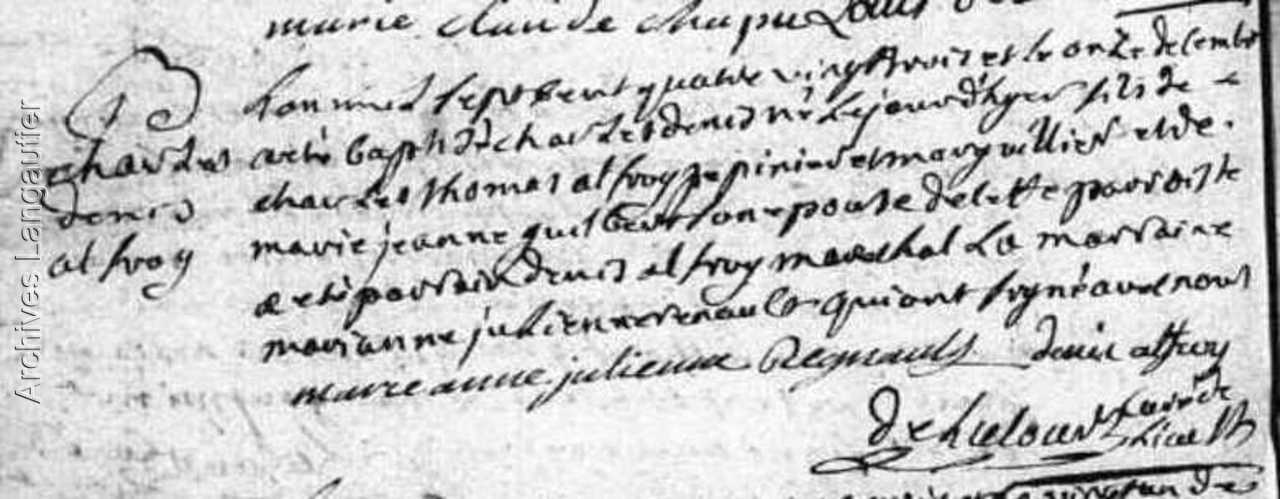 marie claude chapu Louis
B
charles
denis
alfroy
Lan mil sept cent quatre vingt trois et le onze decembr
a eté baptisé charles denis né le jour d'hyer fils de
charles thomas alfroy pepinieriet marguillier et de
marie jeanne guilbert son epouse de cette parroisse
a eté parrain denis alfroy mareshal La marraine
marianne julienne renault qui ont signé avec nous
marie anne julienne Regnault denis alfroy
Archives Langautier